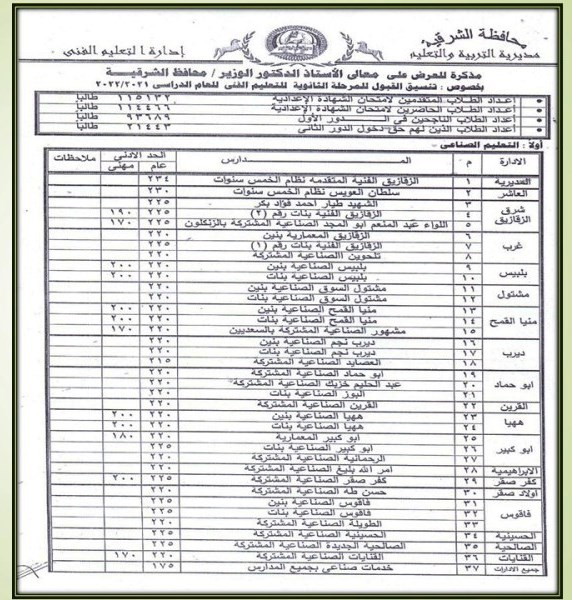 محافظة الشرقية
مديرية التربية والتعليم
إدارة التعليم الفنى
مذكرة للعرض على معالى الأستاذ الدكتور الوزير / محافظ الشرقية
بخصوص : تنسيق القبول للمرحلة الثانوية للتعليم الفنى للعام الدراسى ٢٠٢٢/٢٠٢١
أعداد الطلاب المتقدمين لامتحان الشهادة الإعدادية ١١٥١٣٢ طالباً
أعداد الطلاب الحاضرين لامتحان الشهادة الإعدادية ١١٤٤٢٦ طالباً
أعداد الطلاب الناجحين فى الدور الأول ٩٣٦٨٩ طالباً
أعداد الطلاب الذين لهم حق دخول الدور الثانى ٢١٤٤٣ طالباً
أولاً : التعليم الصناعى
الادارة م المدارس الحد الادنى ملاحظات
عام مهنى
المديرية ١ الزقازيق الفنية المتقدمة نظام الخمس سنوات ٢٣٤
العاشر ٢ سلطان العويس نظام الخمس سنوات ٢٣٠
شرق الزقازيق ٣ الشهيد طيار احمد فؤاد بكر ٢٢٥
٤ الزقازيق الفنية بنات رقم (٢) ٢٢٥ ١٩٠
٥ اللواء عبد المنعم ابو المجد الصناعية المشتركة بالزنكلون ٢٢٥ ١٧٠
غرب ٦ الزقازيق المعمارية بنين ٢٢٠
٧ الزقازيق الفنية بنات رقم (١) ٢٢٥
٨ تلحوين الصناعية المشتركة ٢٢٠
بلبيس ٩ بلبيس الصناعية بنين ٢٢٠ ٢٠٠
١٠ بلبيس الصناعية بنات ٢٢٠ ٢٠٠
مشتول ١١ مشتول السوق الصناعية بنين ٢٢٠
١٢ مشتول السوق الصناعية بنات ٢٢٠
منيا القمح ١٣ منيا القمح الصناعية بنين ٢٢٠ ٢٠٠
١٤ منيا القمح الصناعية بنات ٢٢٠ ٢٠٠
١٥ مشهور الصناعية المشتركة بالسعديين ٢٢٠ ١٧٠
ديرب ١٦ ديرب نجم الصناعية بنين ٢٢٠
١٧ ديرب نجم الصناعية بنات ٢٢٠
١٨ العصايد الصناعية المشتركة ٢١٥
ابو حماد ١٩ ابو حماد الصناعية المشتركة ٢٢٠
٢٠ عبد الحليم الصناعية المشتركة ٢٢٠
٢١ الصناعية بنات ٢٢٠
القرين ٢٢ القرين الصناعية المشتركة ٢٢٠
ههيا ٢٣ ههيا الصناعية بنين ٢٢٠ ٢٠٠
٢٤ ههيا الصناعية بنات ٢٢٠ ٢٠٠
ابو كبير ٢٥ ابو كبير المعمارية ٢٢٠ ١٨٠
٢٦ ابو كبير الصناعية بنات ٢٢٥
٢٧ الرحمانية الصناعية المشتركة ٢٢٠
الابراهيمية ٢٨ امر الله بليغ الصناعية المشتركة ٢٢٥
كفر صقر ٢٩ كفر صقر الصناعية المشتركة ٢٢٥ ٢٠٠
اولاد صقر ٣٠ حسن طه الصناعية المشتركة ٢٢٠
فاقوس ٣١ فاقوس الصناعية بنين ٢٢٥
٣٢ فاقوس الصناعية بنات ٢٢٥
٣٣ الطويلة الصناعية المشتركة ٢٢٠
الحسينية ٣٤ الحسينية الصناعية المشتركة ٢٢٠
الصالحية ٣٥ الصالحية الجديدة الصناعية المشتركة ٢٢٥
القنايات ٣٦ القنايات الصناعية المشتركة ٢٢٠ ١٧٠
جميع الادارات ٣٧ خدمات صناعى بجميع المدارس ١٧٥